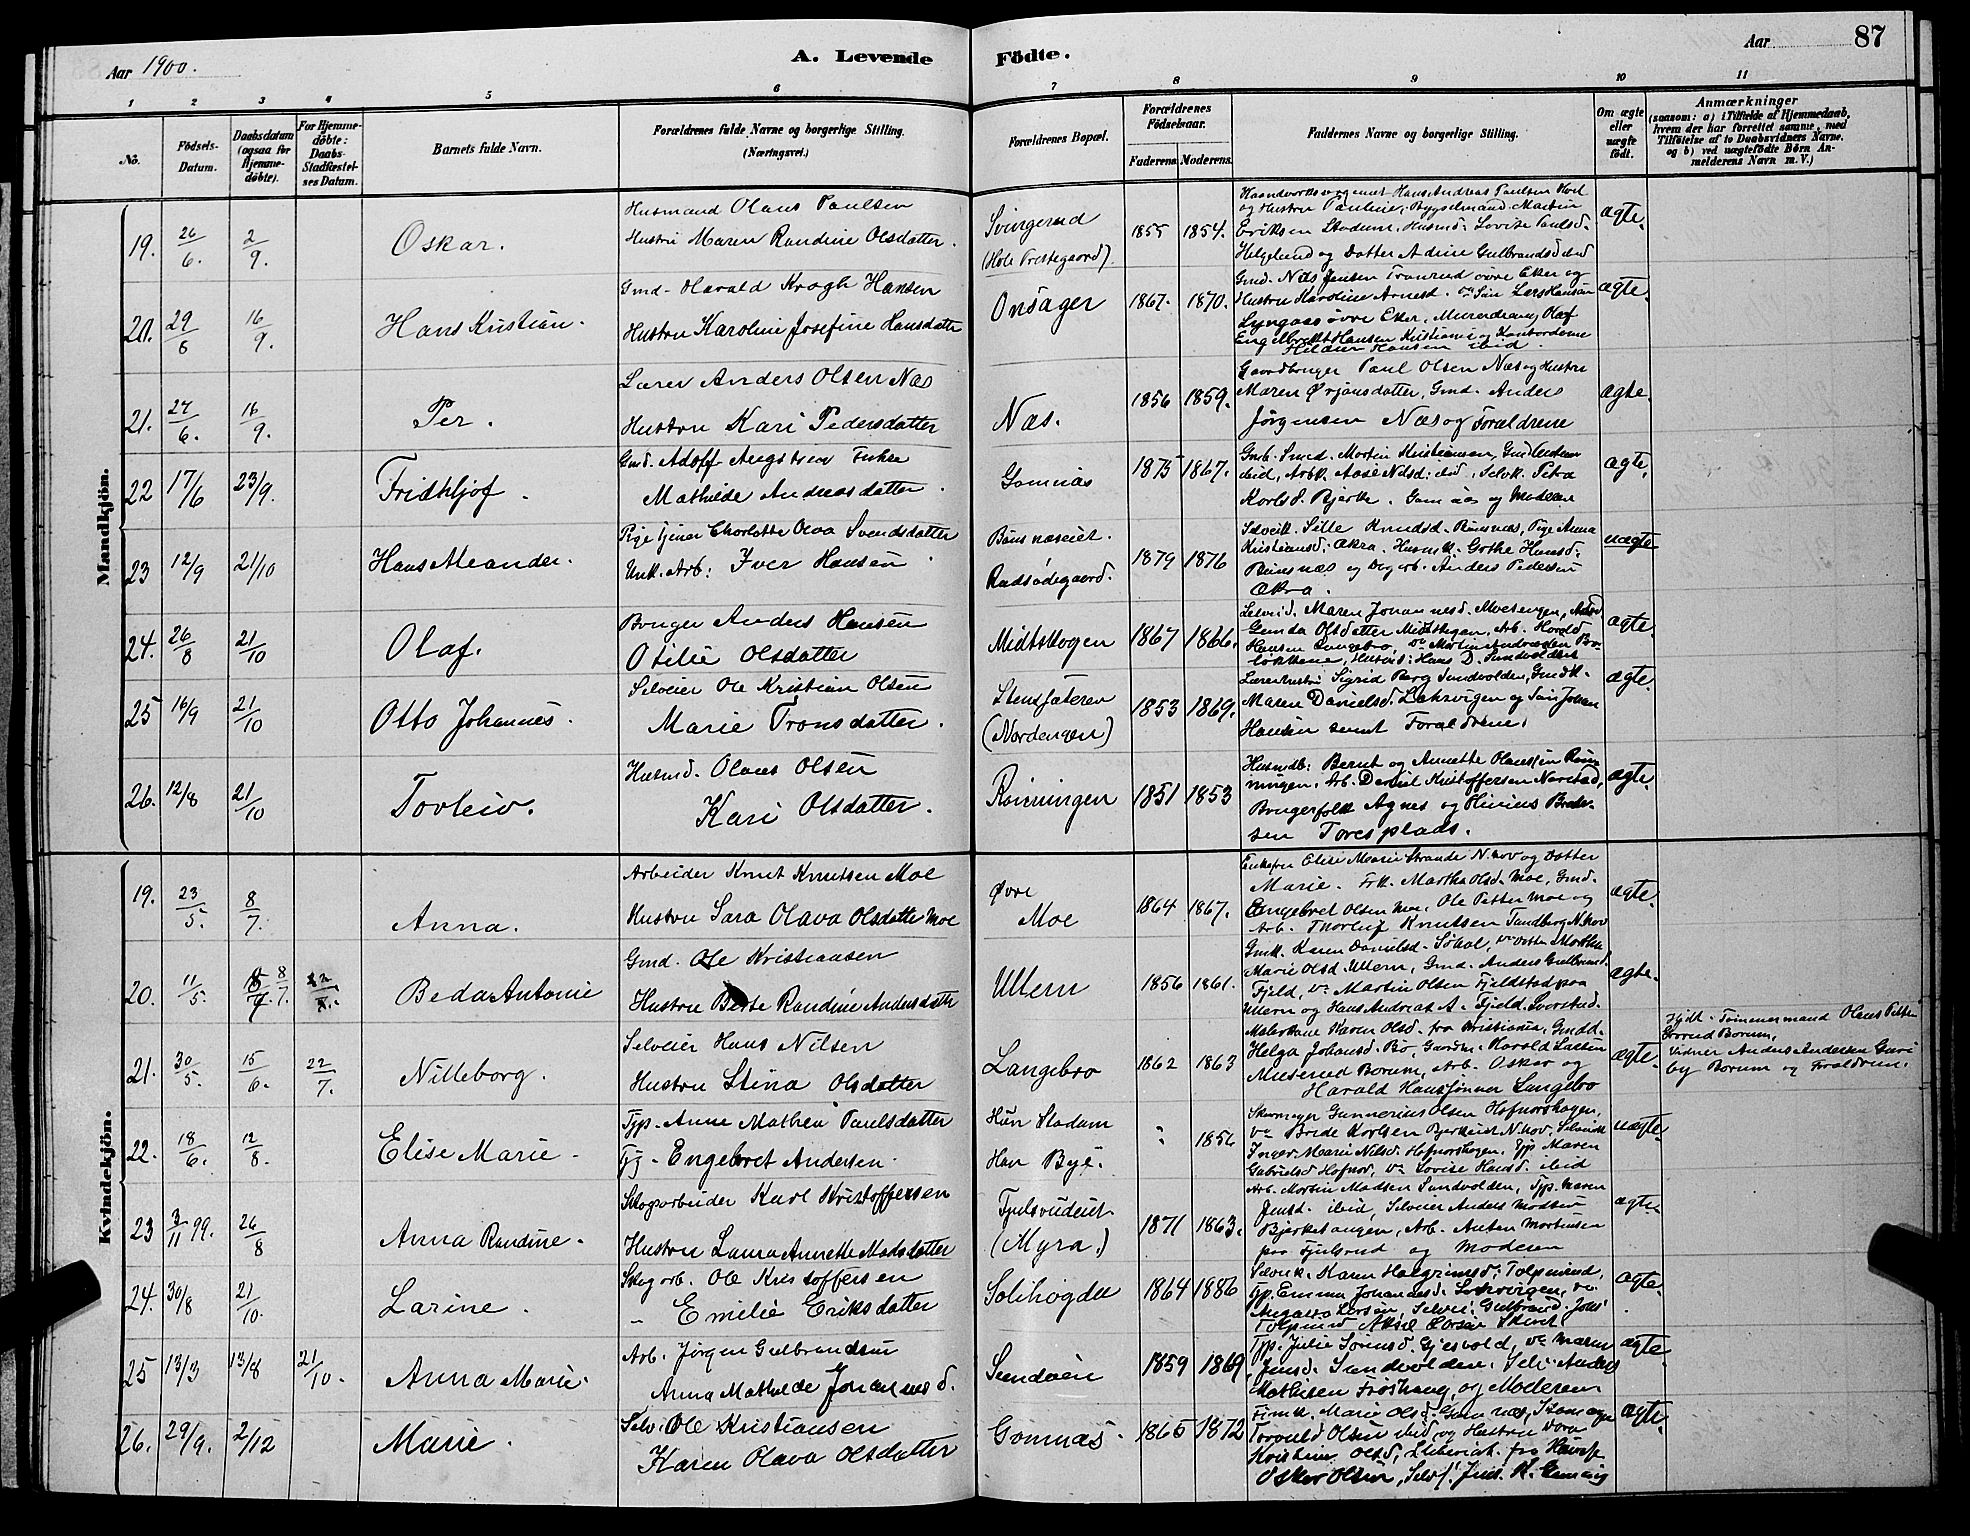 Aar 1900.
A. Levende Födte.
Aar
87
1 2 3 4 5 6 7 8 9 10 11
No.
Födsels-Datum.
Daabsdatum (ogsaa for Hjemme-döbte).
For Hjemme-döbte: Daabs-Stadfæstel-ses Datum.
Barnets fulde Navn.
Forældrenes fulde Navne og borgerlige Stilling. (Næringsvei.)
Forældrenes Bopæl.
Forældrenes Födselsaar.
Faderens. Moderens.
Faddernes Navne og borgerlige Stilling.
Om ægte eller uægte født.
Anmærkninger
(saasom: a) i Tilfælde af Hjemmedaab, hvem der har forrettet samme, med Tilföielse af to Daabsvidners Navne, og b) ved uægtefödte Börn An-melderens Navn m. V.)
Mandkjön.
19. 26/6. 2/9. Oskar.
Husmand Olaus Paulsen
Hustru Maren Randine Olsdatter.
Svingerud
(Hole Prestegaard)
1855 1854.
Hustru Pauline, Bygselmand Martin
Eriksen Stadum, Husmd. Lovise Paulsd.
Helgelund og Datter Adine Gulbrandsd ibid
ægte.
20. 29/6 16/9. Hans Kristian.
Gmd. Harald Krogh Hansen
Hustru Karoline Josefine Hansdatter
Onsager
1867. 1870.
Gmd. Nils Jensen Tranrud øvre Eker og
Hustru Karoline Arnesd. Lars Hansen
Lyngaas øvre Eker, Olaf
Engelbrekt Hansen Kristiania og
Hansen ibid.
ægte.
21. 27/6. 16/9. Per.
Lærer Anders Olsen Næs
Hustru Kari Pedersdatter
Næs.
1856 1859.
Gaardbruger Paul Olsen Næs og Hustru
Maren Ørjansdatter, Gmd. Anders
Jørgensen Næs og Forældrene
ægte.
22 17/6 23/9. Fridhljof.
Gmd. Adolf
Mathilde Andreasdatter.
Gomnæs
1875 1867.
Gmb. Smed. Martin Kristiansen,
ibid, Arbk. Aase Nilsd. ibd, Selvk. Petra
Karlsd. Bjerke. Gomnæs og Moderen
ægte.
23 12/9 21/10 Hans Meander.
Pige tjener Charlotte Olava Svendsdatter
Unk. Arb: Iver Hansen
Bønsnæseiet.
Rudsødegaard.
1879 1876
Selveik. Sille Knudsd. Bønsnæs, Pige Anna
Kristiansd. Økra. Husmk. Gorthe Hansd.
Bønsnæs og Anders Pedersen
Økra.
uægte
24. 26/8 21/10 Olaf.
Bruger Anders Hansen
Otilie Olsdatter
Midtskogen
1867 1866.
Selveid. Maren Johannesd. Moesengen,
Olsdatter Midtskogen, Arb. Harald
Hansen Langebro,
Hans D. Sundvolden
ægte.
25 16/9 21/10 Otto Johannes.
Selveier Ole Kristian Olsen
Marie Tronsdatter.
Stensfateren
(Nordengen)
1853 1869.
Lærerhustru Sigrid Berg Sundvolden, Gmdk.
Maren Danielsd. Leksvigen og Johan
Hansen samt Forældrene.
ægte.
26. 12/8 21/10 Torleiv.
Husmd. Olaus Olsen
Kari Olsdatter.
Rönningen
1851 1853
Husmdb: Bernt og Annette Olaussen Rön-
ningen, Arb. Daniel Kristoffersen Narstad,
Brugerfolk Agnes og Hinius
sen Toresplads.
ægte.
Kvindekjön.
19. 23/5. 8/7. Anna.
Arbeider Knut Knutsen Moe
Hustru Sara Olava Olsdatter Moe
Øvre
Moe
1864 1867.
Enkefru Elise Marie Strande N.hov og Datter
Marie. Frk. Martha Olsd. Moe, Gmd.
Engebret Olsen Moe, Ole Petter Moe og
Arb. Thorleif Knutsen Tandberg N.hov
ægte.
20. 11/5. 8/7. Beda Antonie
Gmd. Ole Kristiansen
Hustru Berte Randine Andersdatter
Ullern
1856 1861.
Gmk. Karen Danielsd. Søhol, Datter Marthe
Marie Olsd. Ullern, Gmd. Anders Gulbrands.
Fjeld, Martin Olsen Fjeldstad paa
Ullern og Hans Andreas A. Fjeld
ægte.
21. 30/5. 15/6. 22/7. Nilleborg.
Selveier Hans Nilsen
Hustru Stina Olsdatter
Langebro
1862 1863
Karen Olsd. fra Kristiania,
Helga Johansd. Bø, Harald Larsen
Borum, Arb. Oskar og
Harald Hanssønner Langebro
ægte.
Hjdt. Tömmermand Olaus Petter
Borum,
Vidner Anders Andersen
Borum og Forældrene.
22. 18/6. 12/8. Elise Marie.
Tjp. Anne Mathea Paulsdatter
Tjg. Engebret Andersen.
Hun Stadum
Han Bye.
: 1856
Gunnerius Olsen Hofnorshagen,
Brede Karlsen Bjerkeiet N.hov,
Inger Marie Nilsd. Hofnorshagen, Tjp Maren
Gabrielsd Hofnor, Lovise Hansd. ibid
uægte.
23 3/11 99. 26/8 Anna Randine.
Skogarbeider Karl Kristoffersen
Hustru Laura Annette Madsdatter
Fjulsrudeiet
(Myra.)
1871 1863.
Arb. Martin Madsen Sundvolden, Tjp. Maren
Jensd. ibid, Selveier Anders Madsen
Bjerketangen, Arb. Anton Mortensen
paa Fjulsrud og Moderen
ægte.
24. 30/8 21/10. Larine.
Skogarb. Ole Kristoffersen
" Emilie Eriksdatter
Solihögda
1864 1886
Selvk. Karen Halgrimsd. Tolpinrud,
Tjp. Emma Johannesd. Leksvigen,
Larsen, Selvei. Gulbrand
Tolpinrud
ægte.
25 13/3 13/8 21/10. Anna Marie.
Arb. Jørgen Gulbrandsen
Anna Mathilde Johannesd.
Sundøen
1859 1869
Tjp. Julie Sörensd. Gjesvold, Maren
Jensd. Sundvolden, Selv. Anders
Mathisen Frøshaug, og Moderen
ægte.
26. 29/9. 2/12 Marie.
Selv. Ole Kristiansen
Karen Olava Olsdatter
Gomnæs.
1865 1872
Marie Olsd. Gomnæs,
Torvald Olsen ibid, og Hustru
Kristine Olsd,
Oskar Olsen,
ægte.